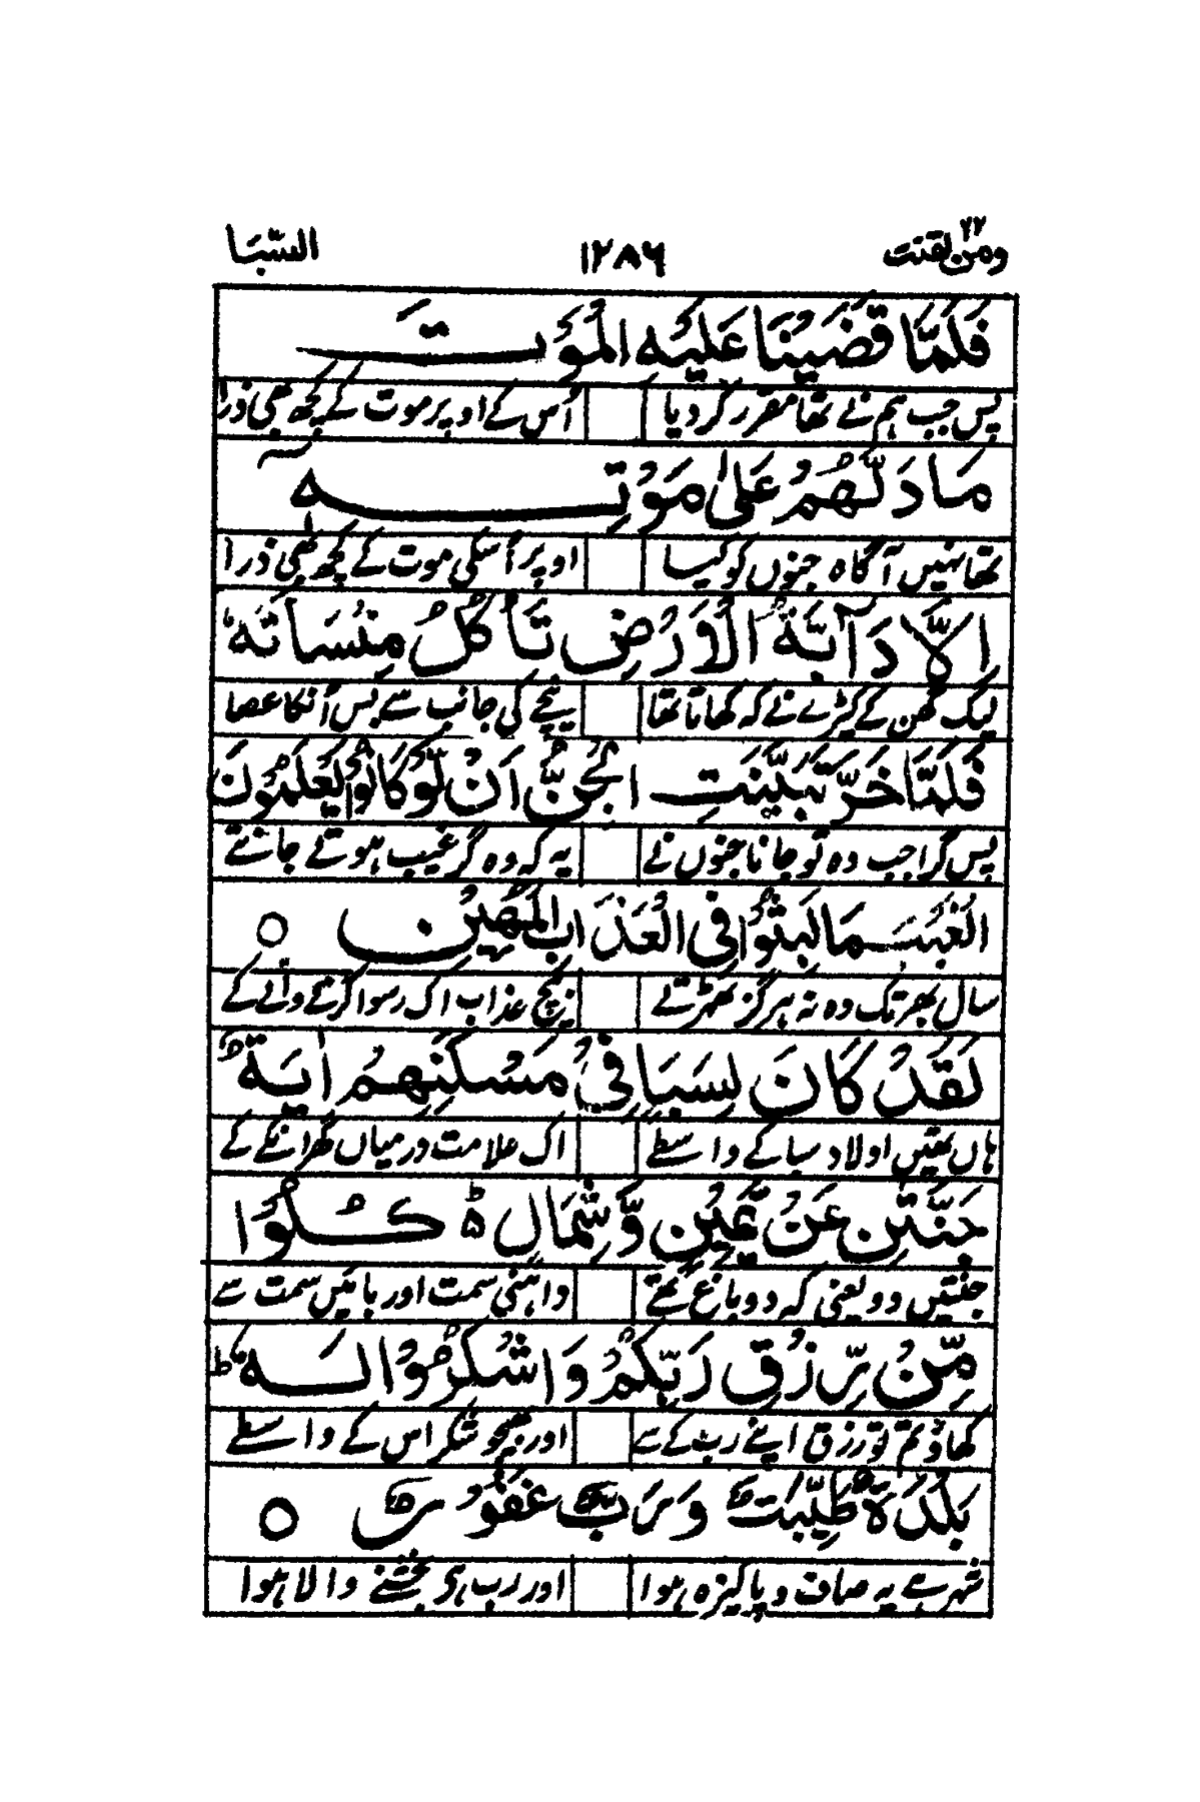 ومن یقنت ۲۲ ۱۲۸۶ السّبَا
فَلَمَّا قَضَيْنَا عَلَيْهِ الْمَوْتَ
پس جب ہم نے تھا مقرر کر دیا اُس کے اوپر موت کے کچھ بھی ذرا
مَا دَلَّهُمْ عَلٰى مَوْتِهٖۤ
تھا نہیں آگاہ جنوں کو کیا اوپر اُسکی موت کے کچھ بھی ذرا
اِلَّا دَآبَّةُ الْاَرْضِ تَاْكُلُ مِنْسَاَتَهٗ ۚ
لیک گھن کے کیڑے نے کہ کھاتا تھا نیچے کی جانب سے بس اُنکا عصا
فَلَمَّا خَرَّ تَبَيَّنَتِ الْجِنُّ اَنْ لَّوْ كَانُوْا يَعْلَمُوْنَ
پس گرا جب وہ تو جانا جنوں نے یہ کہ وہ گر غیب ہوتے جانتے
الْغَيْبَ مَا لَبِثُوْا فِي الْعَذَابِ الْمُهِيْنِ ○
سال بھر تک وہ نہ ہرگز ٹھہرتے بیچ عذاب اک رسوا کرنے والے کے
لَقَدْ كَانَ لِسَبَاٍ فِيْ مَسْكَنِهِمْ اٰيَةٌ ۚ
ہاں تھیں اولاد سبا کے واسطے اک علامت درمیاں گھر انکے کے
جَنَّتٰنِ عَنْ يَّمِيْنٍ وَّشِمَالٍ ۬ؕ كُلُوْا
جنتیں دو یعنی کہ دو باغ تھے داہنی سمت اور بائیں سمت سے
مِنْ رِّزْقِ رَبِّكُمْ وَاشْكُرُوْا لَهٗ ؕ
کھاؤ تم تو رزق اپنے رب کے سے اور بھیجو شکر اس کے واسطے
بَلْدَةٌ طَيِّبَةٌ وَّرَبٌّ غَفُوْرٌ ○
شہر ہے یہ صاف و پاکیزہ ہوا اور رب ہی بخشنے والا ہوا